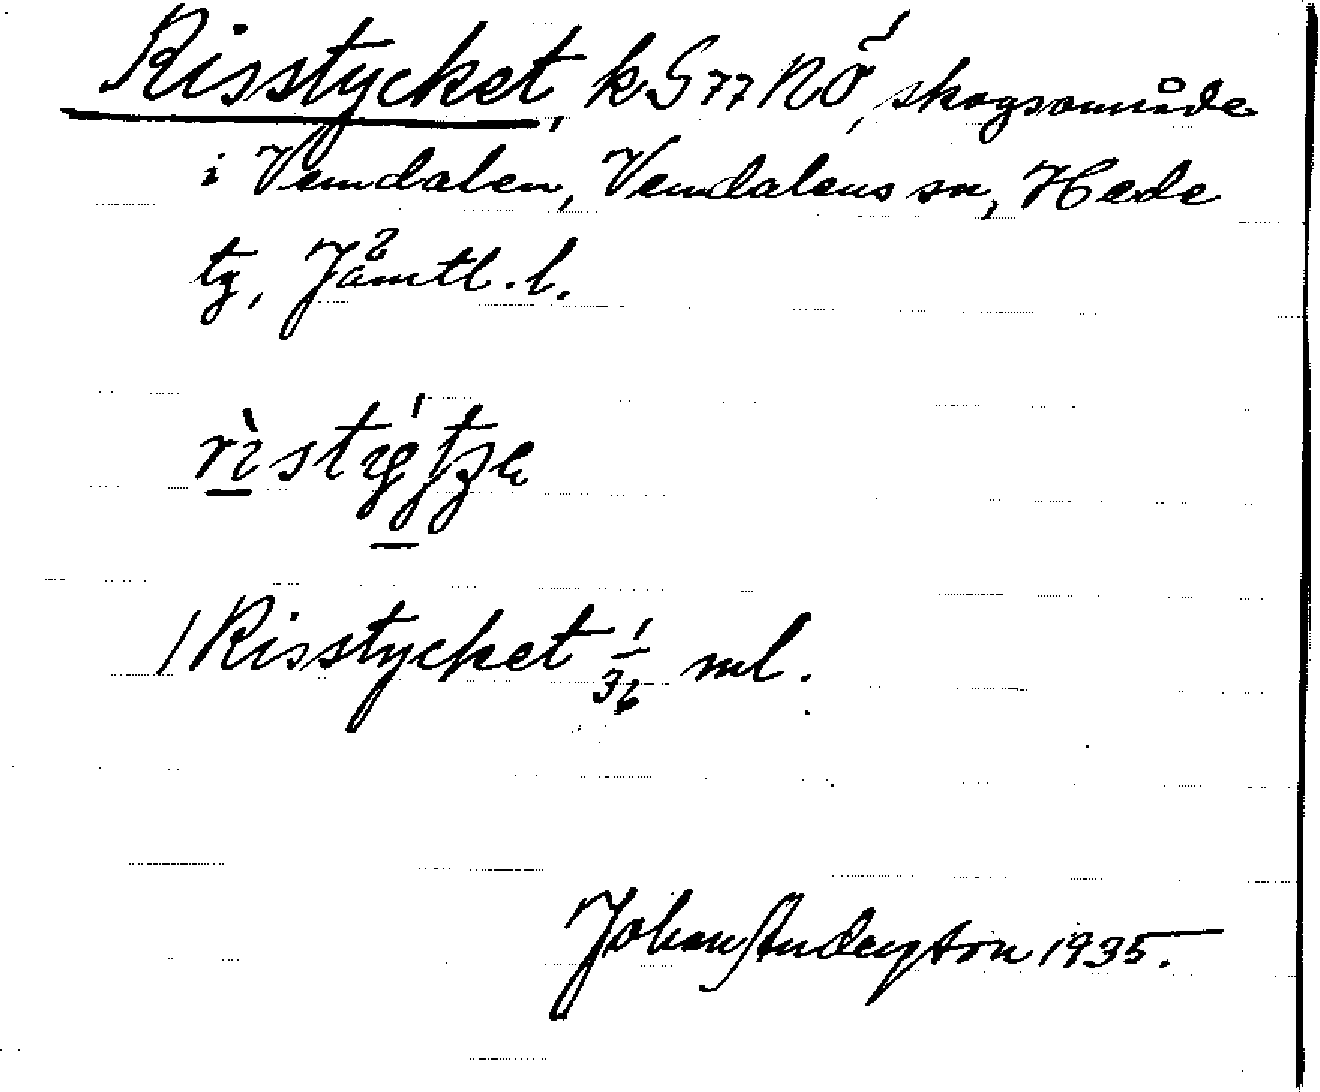 Risstycket, k G 77 NÖ, skogsområde
i Vemdalen, Vemdalens sn, Hede
tg, Jämtl. l.
/Risstycket 1/36 ml.
Johan Anderzton 1935.